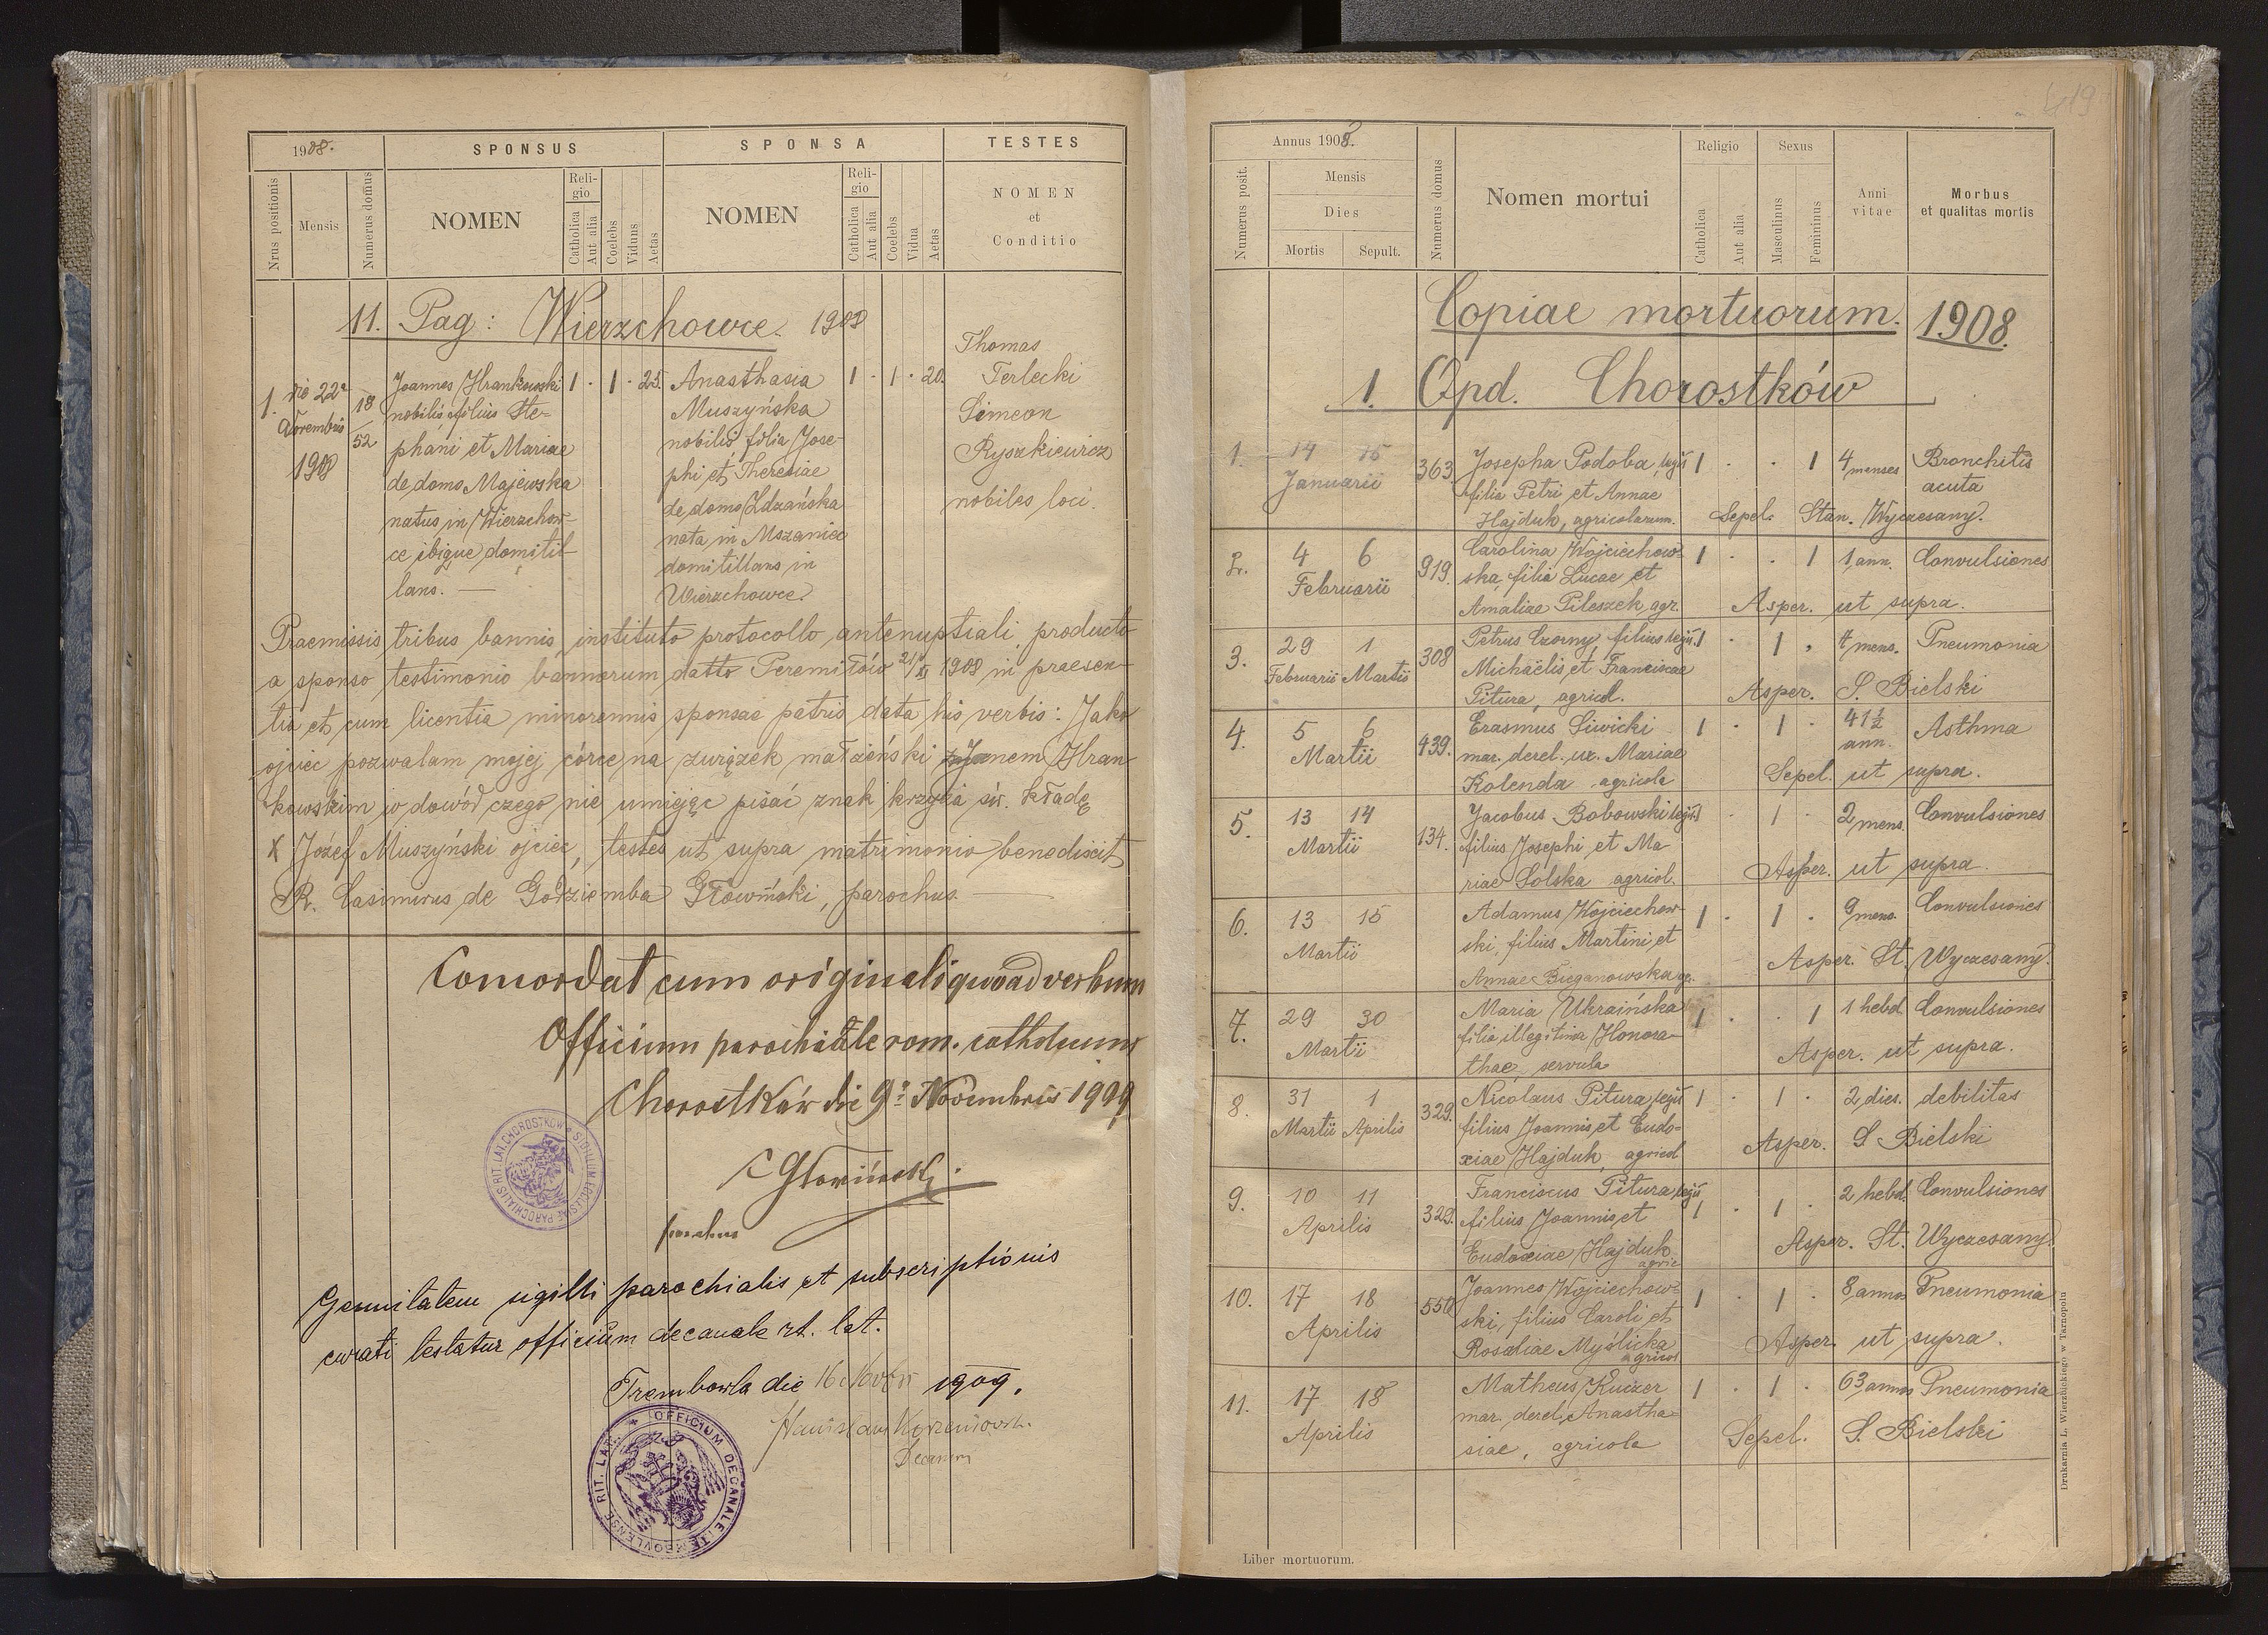 1908.
SPONSUS
SPONSA
TESTES
Nrus positionis
Mensis
Numerus domus
NOMEN
Reli-
gio
Catholica
Aut alia
Coelebs
Viduus
Aetas
NOMEN
Reli-
gio
Catholica
Aut alia
Coelebs
Vidua
Aetas
NOMEN
et
Conditio
11. Pag: Wierzchowce. 1908
1. die 22a Novembris 1908
18
52
Joannes Hrankowski 1 · 1 · 25.
nobilis, filius Ste-
phani et Mariae
de domo Majewska
natus in Wierzchow-
ce ibique domitil-
lans. —
Anasthasia 1 · 1 · 20.
Muszyńska
nobilis filia Jose-
phi et Theresiae
de domo Zdzańska
nata in Mszaniec
domitillans in
Wierzchowce.
Thomas
Terlecki
Simeon
Ryszkiewicz
nobiles loci.
Praemissis tribus bannis, instituto protocollo antenuptiali, producto
a sponso testimonio bannorum datto Peremiłów 21/XI 1908 in praesen-
tia et cum licentia minorennis sponsae patris data his verbis: Jako
ojciec pozwalam mojej córce na związek małżeński z Janem Hran-
kowskim w dowód czego nie umiejąc pisać znak krzyża św. kładę
X Józef Muszyński ojciec, testes ut supra matrimonio benedixit
R. Casimirus de Godziemba Głowiński, parochus.
Concordat cum originali quoad verbum
Officium parochiale rom. catholicum
Chorostków die 9a Novembris 1909
C Głowiński
parochus
SIGILLUM ECCLESIAE PAROCHIALIS RIT. LAT. CHOROSTKOW
Genuitatem sigilli parochialis et subscriptionis
curati testatur officium decanale rt. lat.
Trembowla die 16 Novbr 1909.
Decanus
OFFICIUM DECANALE TREMBOVLENSE RIT. LAT.
419
Annus 1908.
Numerus posit.
Mensis
Dies
Mortis
Sepult.
Numerus domus
Nomen mortui
Religio
Catholica
Aut alia
Sexus
Masculinus
Femininus
Anni
vitae
Morbus
et qualitas mortis
Copiae mortuorum. 1908.
1. Opd. Chorostków
1. 14 15 Januarii 363 Josepha Podoba, legit. 1 · · 1 4 menses Bronchitis acuta
filia Petri et Annae
Hajduk, agricolarum. Sepel. Stan. Wyczesany.
2. 4 6 Februarii 919. Carolina Wojciechow- 1 · · 1 1 ann. Convulsiones
ska, filia Lucae et
Amaliae Pileszek, agr. Asper. ut supra.
3. 29 Februarii 1 Martii 308 Petrus Czorny, filius legit. 1 · 1 · 7 mens. Pneumonia
Michaëlis et Franciscae
Pitura, agricol. Asper. S. Bielski
4. 5 6 Martii 439. Erasmus Siwicki 1 · 1 · 41 1/2 ann. Asthma
mar. derel. ux. Mariae
Kolenda agricola Sepel. ut supra.
5. 13 14 Martii 134. Jacobus Bobowski legit. 1 · 1 · 2 mens. Convulsiones
filius Josephi et Ma
riae Solska agricol. Asper. ut supra
6. 13 15 Martii Adamus Wojciechow- 1 · 1 · 9 mens. Convulsiones
ski, filius Martini et
Annae Bieganowska ag. Asper. St. Wyczesany.
7. 29 30 Martii Maria Ukraińska 1 · · 1 1 hebd. Convulsiones
filia illegitima Honora-
thae, servula Asper. ut supra.
8. 31 Martii 1 Aprilis 329. Nicolaus Pitura, legit 1 · 1 · 2 dies. debilitas
filius Joannis et Eudo-
xiae Hajduk, agricol Asper. S Bielski
9. 10 11 Aprilis 329. Franciscus Pitura, legit 1 · 1 · 2 hebd. Convulsiones
filius Joannis et
Eudoxiae Hajduk agric Asper. St. Wyczesany.
10. 17 18 Aprilis 550 Joannes Wojciechow- 1 · 1 · 8 annos Pneumonia
ski, filius Caroli et
Rosaliae Myślicka agricol Asper. ut supra.
11. 17 18 Aprilis Matheus Kuizer 1 · 1 · 63 annos Pneumonia
mar. derel. Anastha-
siae, agricola Sepel. S. Bielski
Liber mortuorum.
Drukarnia L. Wierzbickiego w Tarnopolu